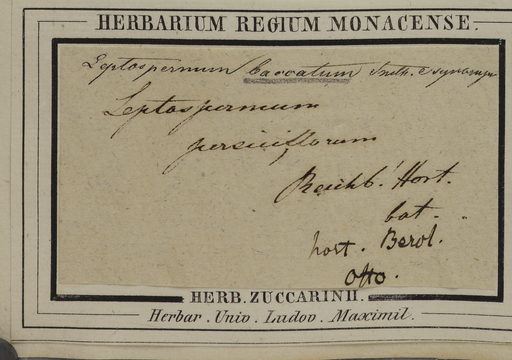 HERBARIUM REGIUM MONACENSE.
Leptospermum baccatum Smth. e synonym
Leptospermum
persiciflorum
Reichb. Hort.
bot.
hort. Berol.
Otto.
HERB. ZUCCARINII.
Herbar. Univ. Ludov. Maximil.